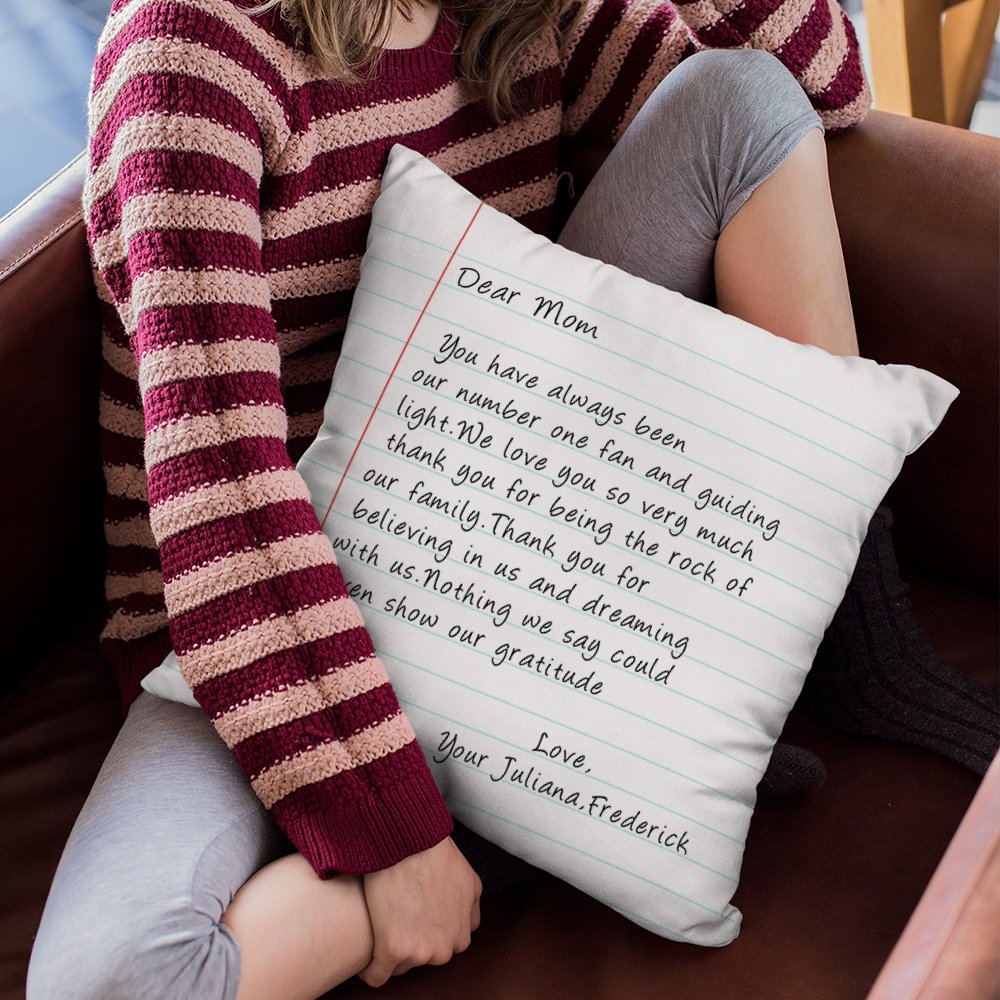 Dear Mom
You have always been
our number one fan and guiding
light.We love you so very much
thank you for being the rock of
our family.Thank you for
believing in us and dreaming
with us.Nothing we say could
show our gratitude
Love,
Your Juliana,Frederick